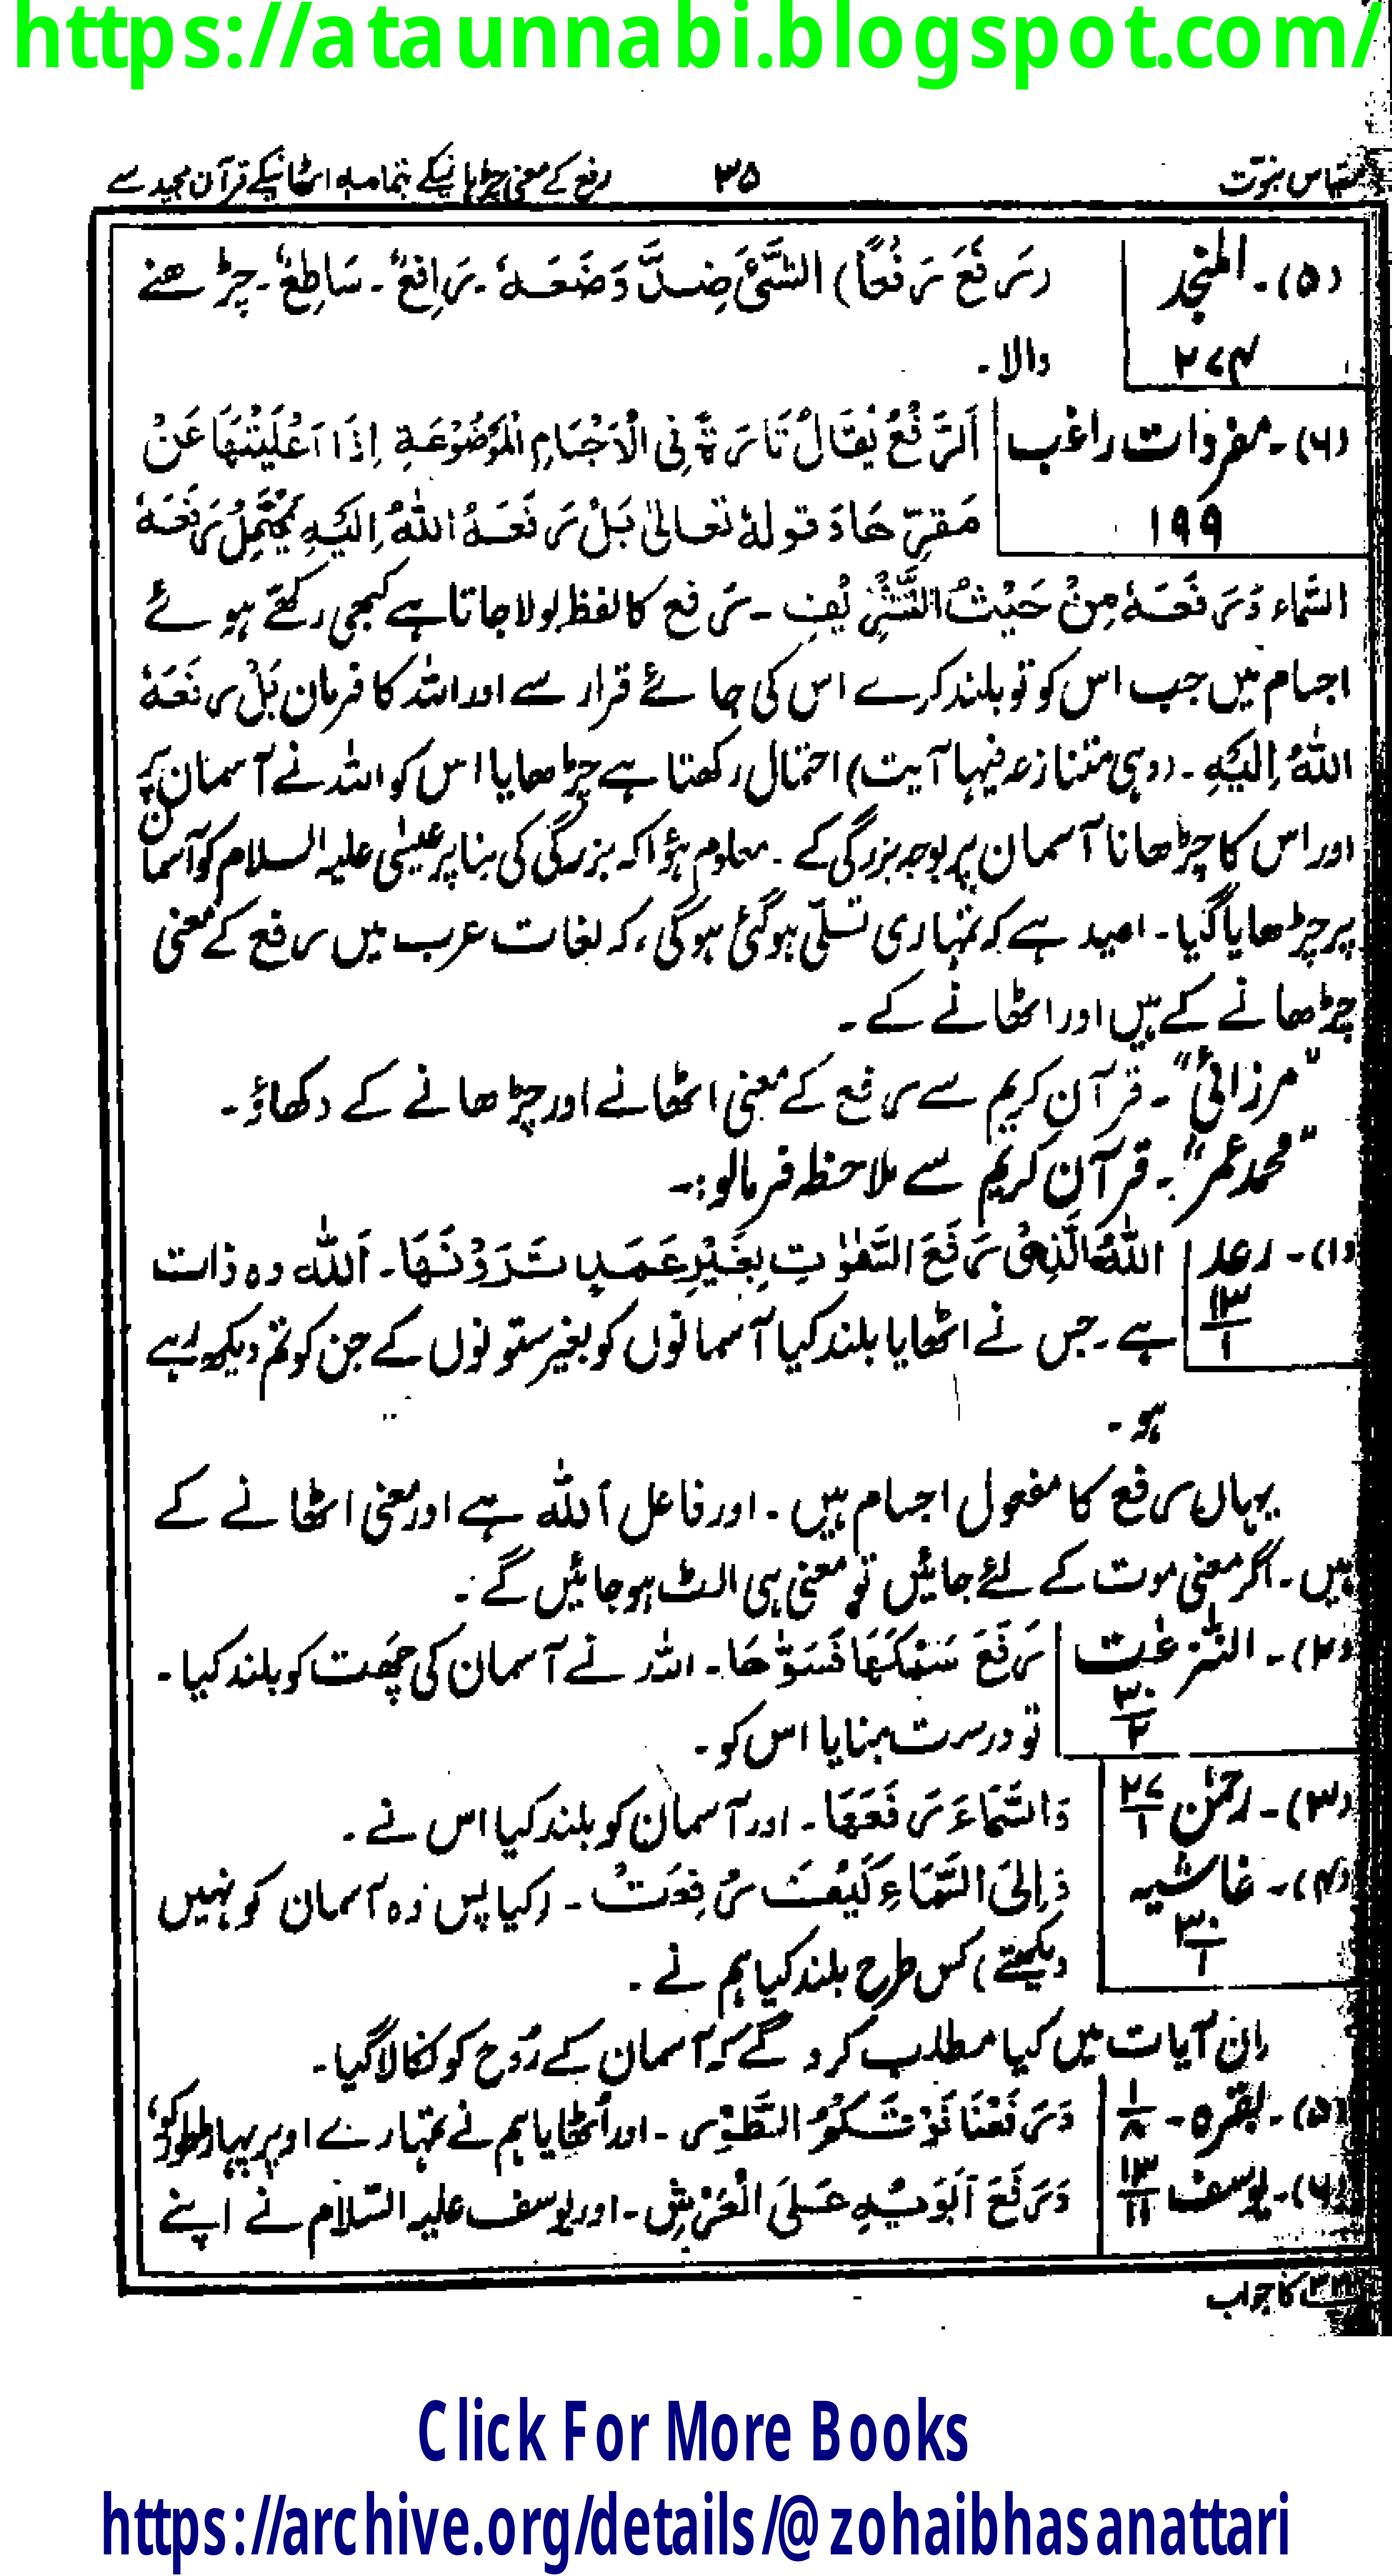 https://ataunnabi.blogspot.com/
مقیاس نبوّت ۳۵ رفع کے معنی چڑہانیکے بتمامہٖ اٹھانیکے قرآن مجید سے
(۵)۔ المنجد ۲۷۴ (رَفَعَ رَفْعًا) الشَّیْءَ ضِدُّ وَضَعَہٗ۔ رَافِعٌ۔ سَاطِعٌ۔ چڑھنے
والا۔
(۶)۔ مفردات راغب ۱۹۹ اَلرَّفْعُ یُقَالُ تَارَۃً فِی الْاَجْسَامِ الْمَوْضُوْعَۃِ اِذَا اَعْلَیْتَھَا عَنْ
مَقَرِّھَا وَ قولہٗ تعالیٰ بَلْ رَفَعَہُ اللّٰہُ اِلَیْہِ یَحْتَمِلُ رَفَعَہٗ
السَّماء وَرَفَعَہٗ مِنْ حَیْثُ التَّشْرِیْفِ ۔ رفع کا لفظ بولا جاتا ہے کبھی رکھے ہوئے
اجسام میں جب اس کو تو بلند کرے اس کی جائے قرار سے اور اللہ کا فرمان بَلْ رفَعَہٗ
اللّٰہُ اِلَیْہِ ۔ (وہی متنازعہ فیہا آیت) احتمال رکھتا ہے چڑھایا اس کو اللہ نے آسمان پر
اور اس کا چڑھانا آسمان پر بوجہ بزرگی کے ۔ معلوم ہؤا کہ بزرگی کی بنا پر عیسٰی علیہ السلام کو آسمان
پر چڑھایا گیا۔ امید ہے کہ تمہاری تسلّی ہوگئی ہوگی، کہ لغات عرب میں رفع کے معنی
چڑھانے کے ہیں اور اٹھانے کے ۔
"مرزائی"۔ قرآن کریم سے رفع کے معنی اٹھانے اور چڑھانے کے دکھاؤ۔
"محمد عمر"۔ قرآن کریم سے ملاحظہ فرمالو:۔
(۱)۔ رعد ۱۳/۱ اَللّٰہُ الَّذِیْ رَفَعَ السَّمٰوٰتِ بِغَیْرِ عَمَدٍ تَرَوْنَھَا۔ اَللّٰہ وہ ذات
ہے ۔ جس نے اٹھایا بلند کیا آسمانوں کو بغیر ستونوں کے جن کو تم دیکھ رہے
ہو۔
یہاں رفع کا مفعول اجسام ہیں ۔ اور فاعل اَللّٰہ ہے اور معنی اٹھانے کے
ہیں۔ اگر معنی موت کے لئے جائیں تو معنی ہی الٹ ہو جائیں گے ۔
(۲)۔ النّٰزِعٰت ۳۰/۲ رَفَعَ سَمْکَھَا فَسَوّٰھَا۔ اللہ نے آسمان کی چھت کو بلند کیا ۔
تو درست بنایا اس کو ۔
(۳)۔ رحمٰن ۲۷/۱ وَالسَّمَاءَ رَفَعَھَا ۔ اور آسمان کو بلند کیا اس نے ۔
(۴)۔ غاشیہ ۳۰/۱ وَاِلیَ السَّمَاءِ کَیْفَ رُفِعَتْ ۔ (کیا پس وہ آسمان کو نہیں
دیکھتے) کس طرح بلند کیا ہم نے ۔
ان آیات میں کیا مطلب کرو گے کہ آسمان کے رُوح کو نکالا گیا۔
(۵)۔ بقرہ۔ ۱/۸ وَرَفَعْنَا فَوْقَکُمُ الطُّوْر ۔ اور اُٹھایا ہم نے تمہارے اوپر پہاڑ طور کو،
(۶)۔ یوسف ۱۳/۱۱ وَرَفَعَ اَبَوَیْہِ عَلیَ الْعَرْشِ ۔ اور یوسف علیہ السّلام نے اپنے
کا جواب
Click For More Books
https://archive.org/details/@zohaibhasanattari